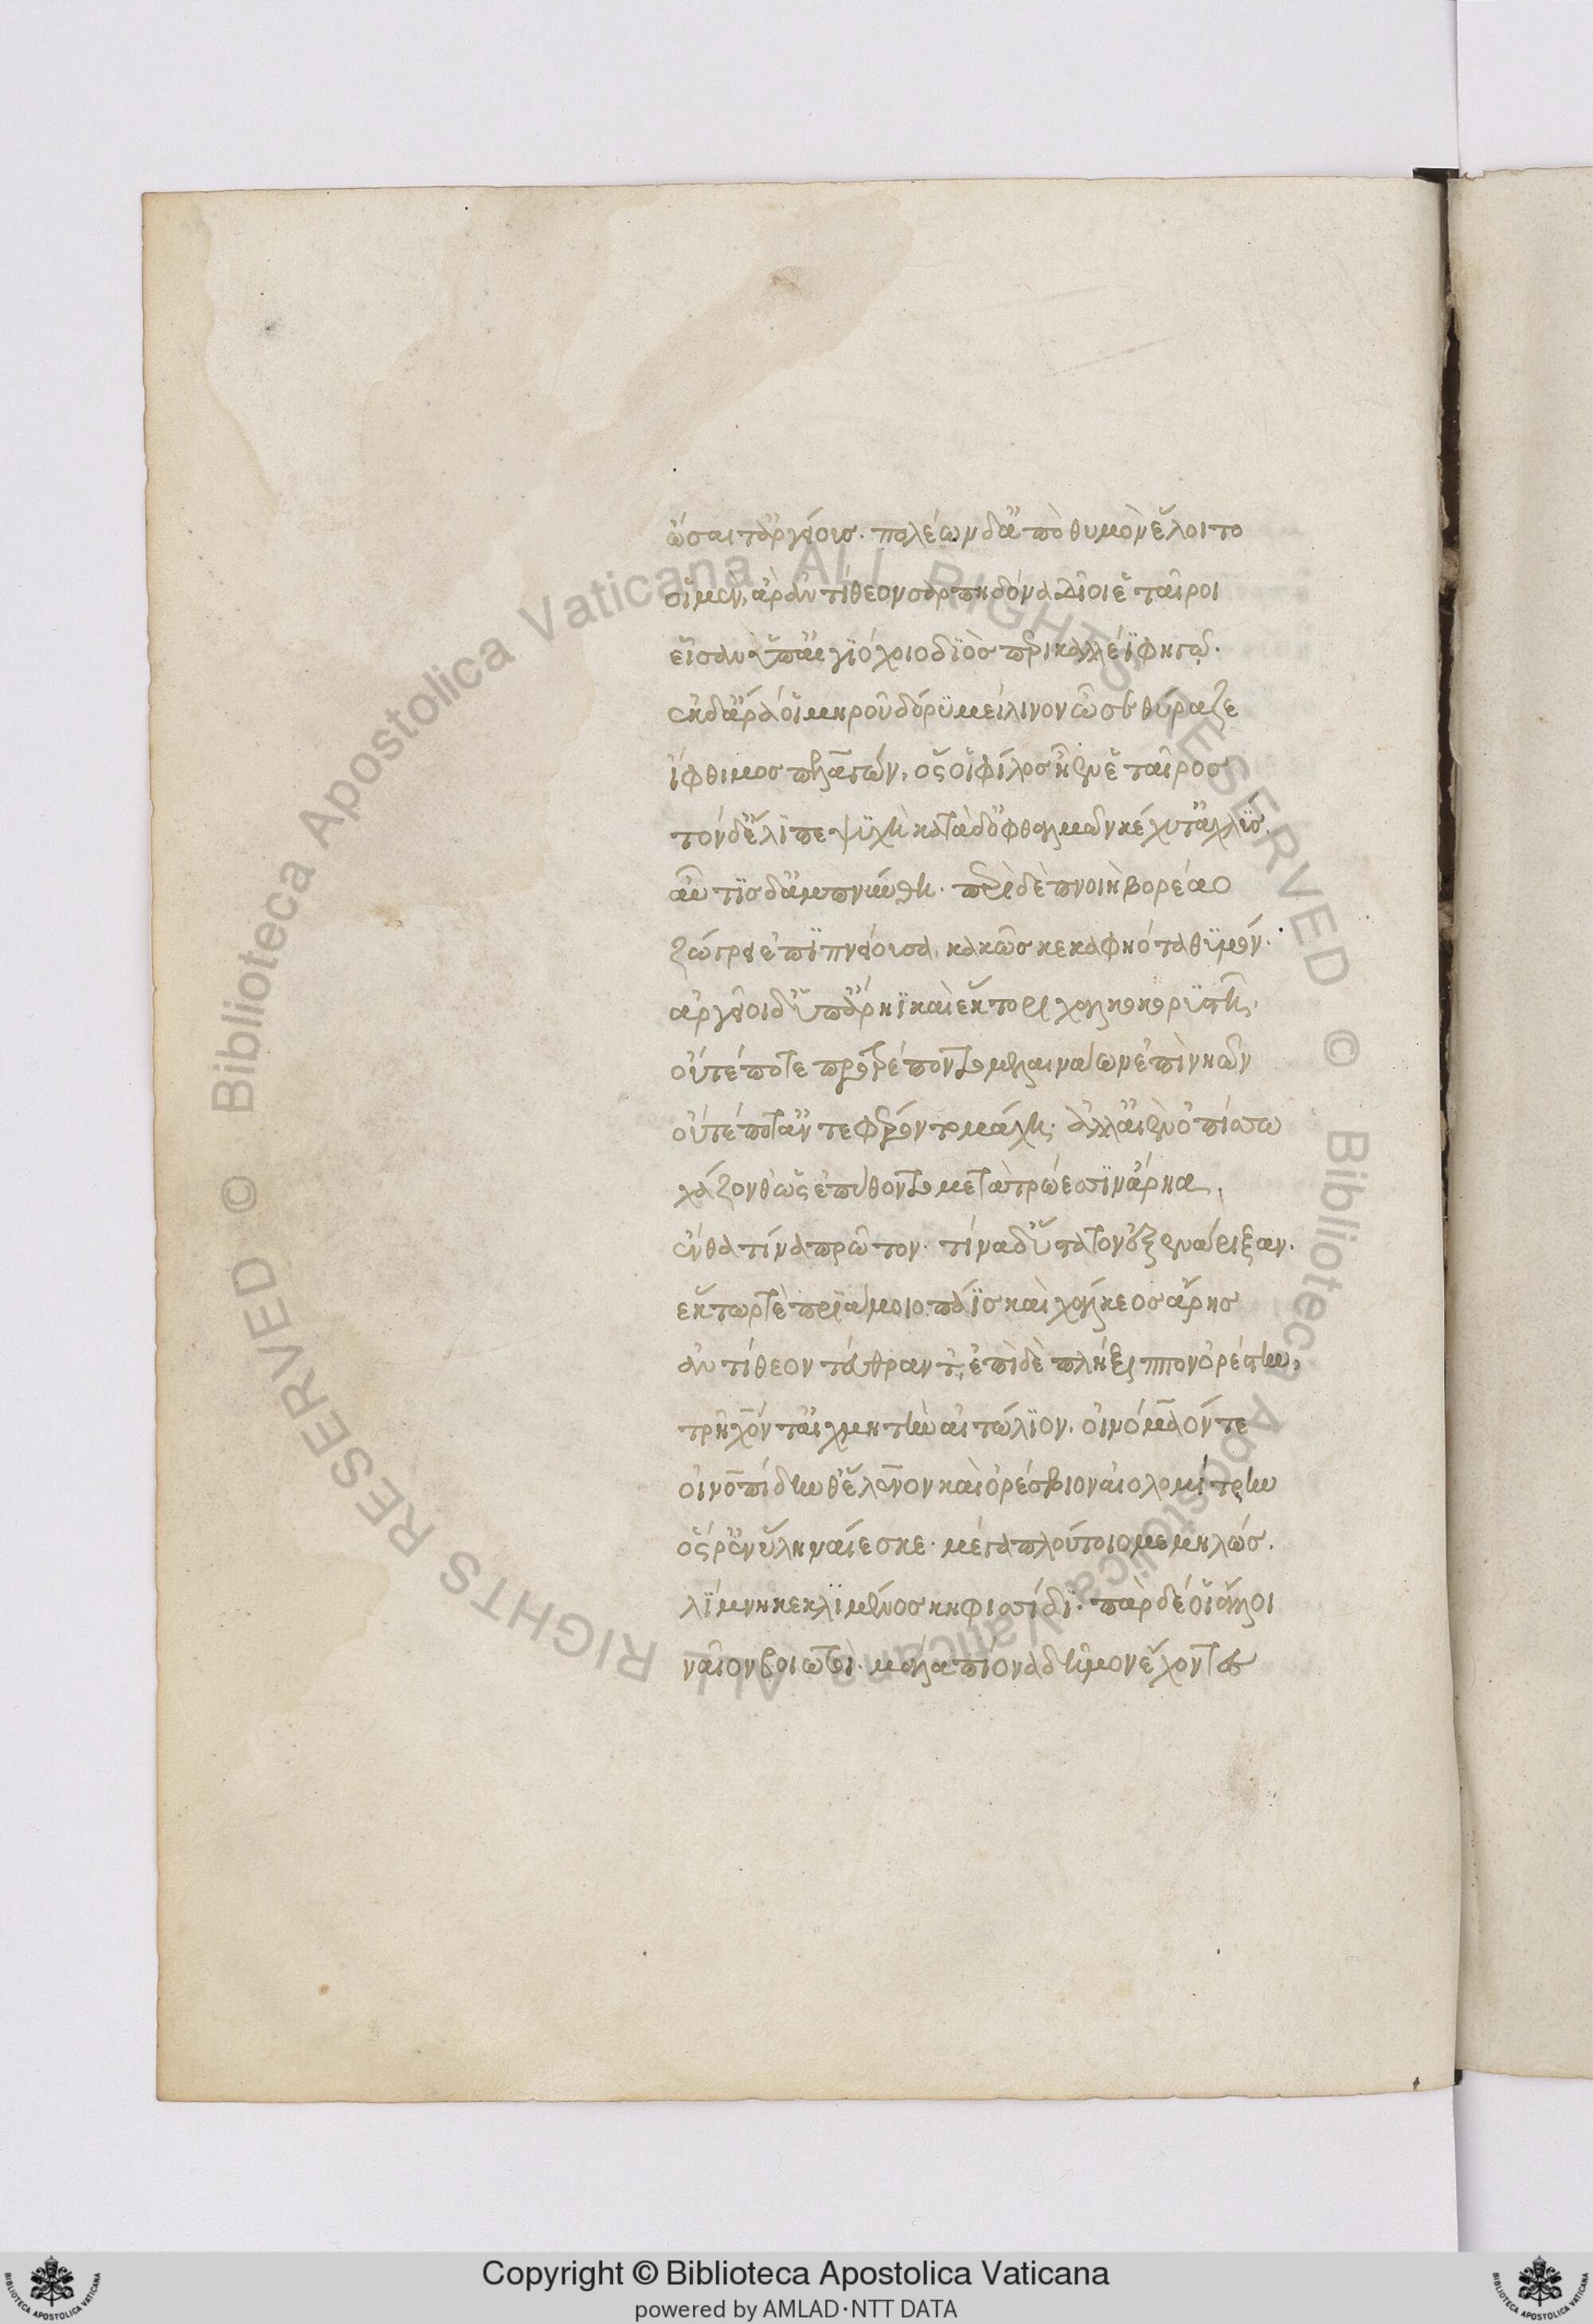 ὤσαιτ' ἀργείους. πολέων δ' ἀπὸ θυμὸν ἕλοιτο
οἱ μὲν, ἄρ' ἀντίθεον σαρπηδόνα δῖοι ἑταῖροι
εἷσαν ὑπ' αἰγιόχοιο διὸς περικαλλέϊ φηγῷ.
ἐκ δ' ἄρα οἱ μηροῦ δόρυ μείλινον ὦσε θύραζε
ἴφθιμος πελάγων, ὅς οἱ φίλος ἦεν ἑταῖρος
τὸν δ' ἔλιπε ψυχὴ κατὰ δ' ὀφθαλμῶν κέχυτ' ἀχλύς.
αὖτις δ' ἀμπνύνθη. περὶ δὲ πνοιὴ βορέαο
ζώγρει ἐπιπνείουσα, κακῶς κεκαφηότα θυμόν.
ἀργεῖοι δ' ὑπ' ἄρηϊ καὶ ἕκτορι χαλκοκορυστῇ.
οὔτέ ποτε προτρέποντο μελαινάων ἐπὶ νηῶν
οὔτέ ποτ' ἀντεφέροντο μάχῃ. ἀλλ' αἰὲν ὀπίσσω
χάζονθ' ὡς ἐπύθοντο μετὰ τρώεσσιν ἄρηα.
ἔνθα τίνα πρῶτον. τίνα δ' ὕστατον ἐξενάριξαν.
ἕκτωρ τὲ πριάμοιο πάϊς καὶ χάλκεος ἄρης
ἀντίθεον τεύθραντ', ἐπὶ δὲ πλήξιππον ὀρέστην,
τρῆχόν τ' αἰχμητὴν αἰτώλιον. οἰνόμαόν τε
οἰνοπίδην θ' ἕλενον καὶ ὀρέσβιον αἰολομίτρην
ὅς ῥ' ἐν ὕλῃ ναίεσκε. μέγα πλούτοιο μεμηλώς.
λίμνῃ κεκλιμένος κηφισίδι. πὰρ δέ οἱ ἄλλοι
ναῖον βοιωτοὶ. μάλα πίονα δῆμον ἔχοντες
Copyright © Biblioteca Apostolica Vaticana
powered by AMLAD·NTT DATA
Biblioteca Apostolica Vaticana ALL RIGHTS RESERVED ©
Biblioteca Apostolica Vaticana ALL RIGHTS RESERVED ©